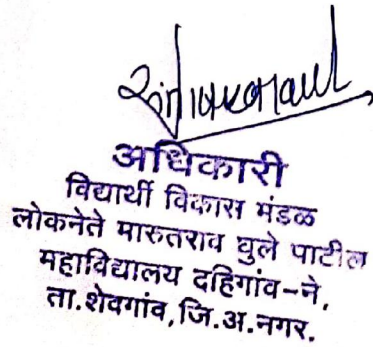 अधिकारी
विद्यार्थी विकास मंडळ
लोकनेते मारुतराव घुले पाटील
महाविद्यालय दहिगांव-ने,
ता.शेवगांव,जि.अ.नगर.